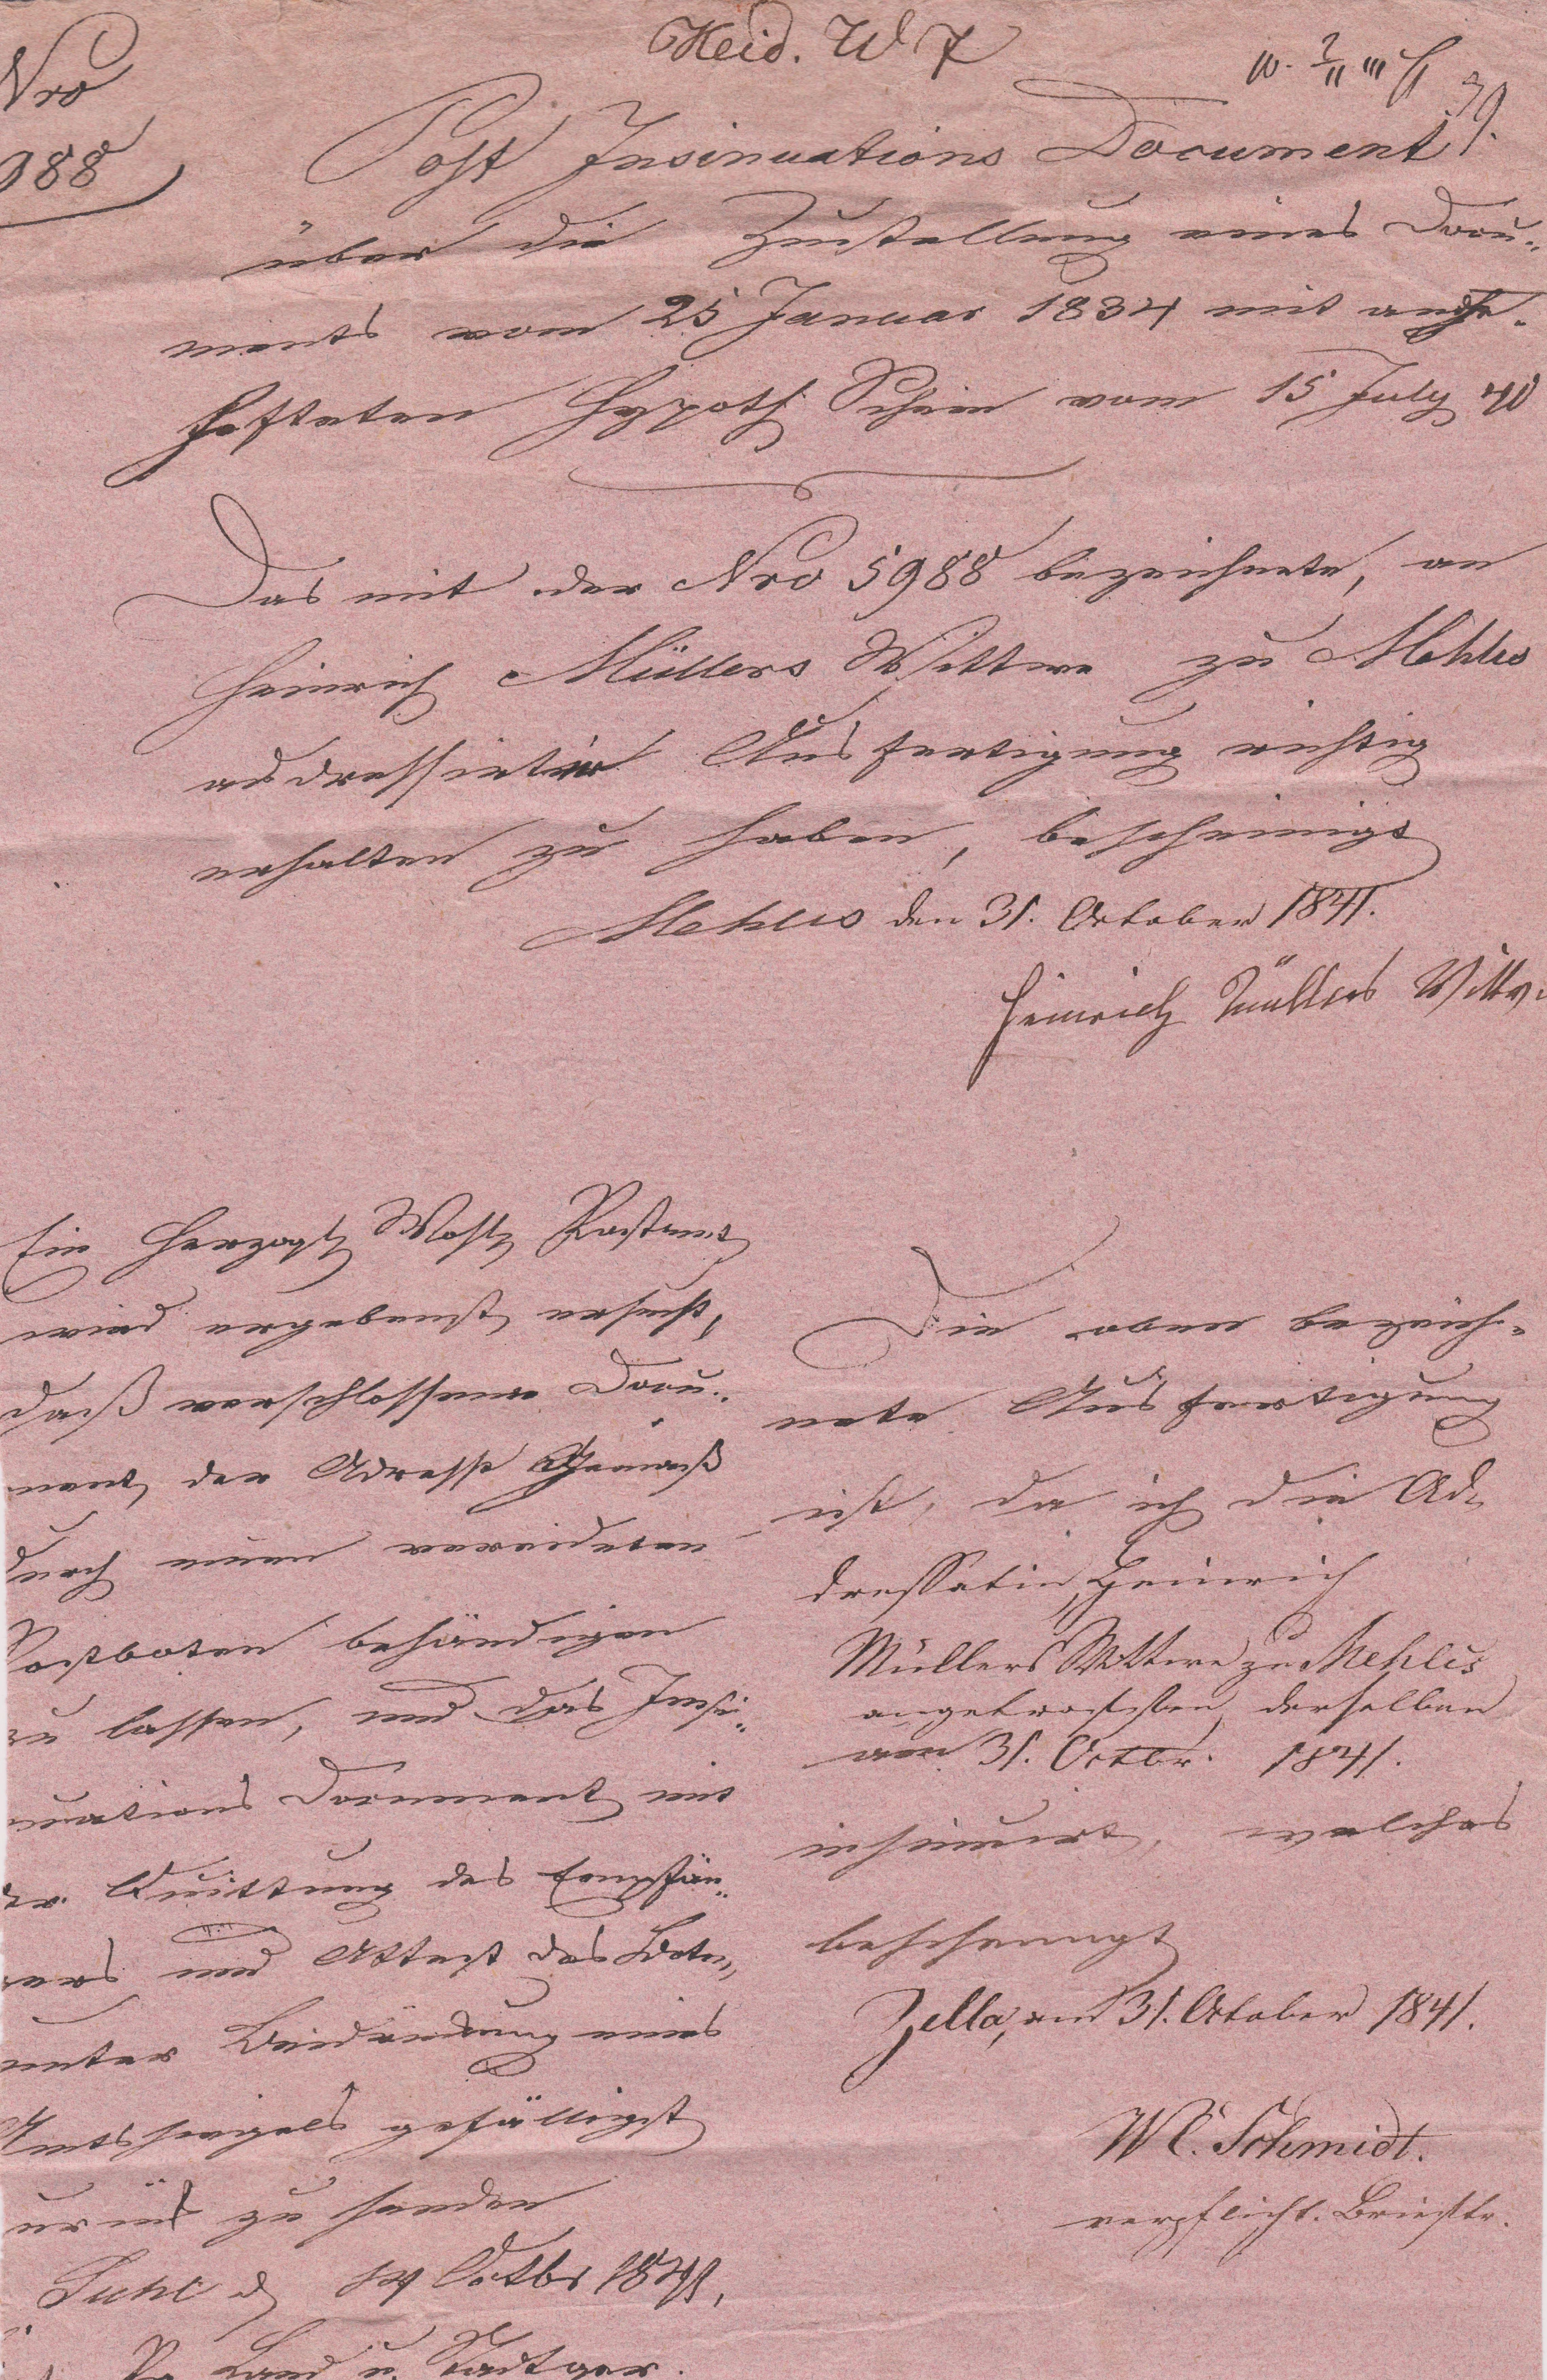 Nro
988
Heid. W 7
Post Insinuations Document
über die Zustellung eines Docu-
ments vom 25 Januar 1834 mit ange-
hefteten Hypoth Schein vom 15 July 40
Das mit der Nro 5988 bezeichnete, an
Heinrich Müllers Wittwe zu Mehlis
addressirte Ausfertigung richtig
erhalten zu haben, bescheinigt
Mehlis den 31. October 1841.
Heinrich Müllers Wittwe
Ein Herzogl Wohll Postamt
wird ergebenst ersucht,
daß verschlossene Docu-
ment, der Adresse Gemäß
durch einen vereideten
Postboten behändigen
zu lassen, und das Insi-
nuations Document mit
der Quittung des Empfän-
gers und Attest des Boten
unter Beidrückung eines
Amtssiegels gefälligst
zurück zu senden
Suhl d 14 Octbr 1841,
Land u. Stadtger.
Die oben bezeich-
nete Ausfertigung
ist, da ich die Ad-
dressatin, Heinrich
Müllers Wittwe zu Mehlis
angetroffen, derselben
am 31. Octbr. 1841.
insinuirt, welches
bescheinigt
Zella, am 31. October 1841.
W C. Schmidt.
verpflicht. Briefttr.